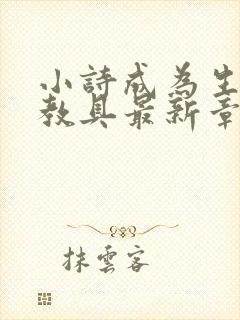 小詩成為生
教具最新章
抹雲客